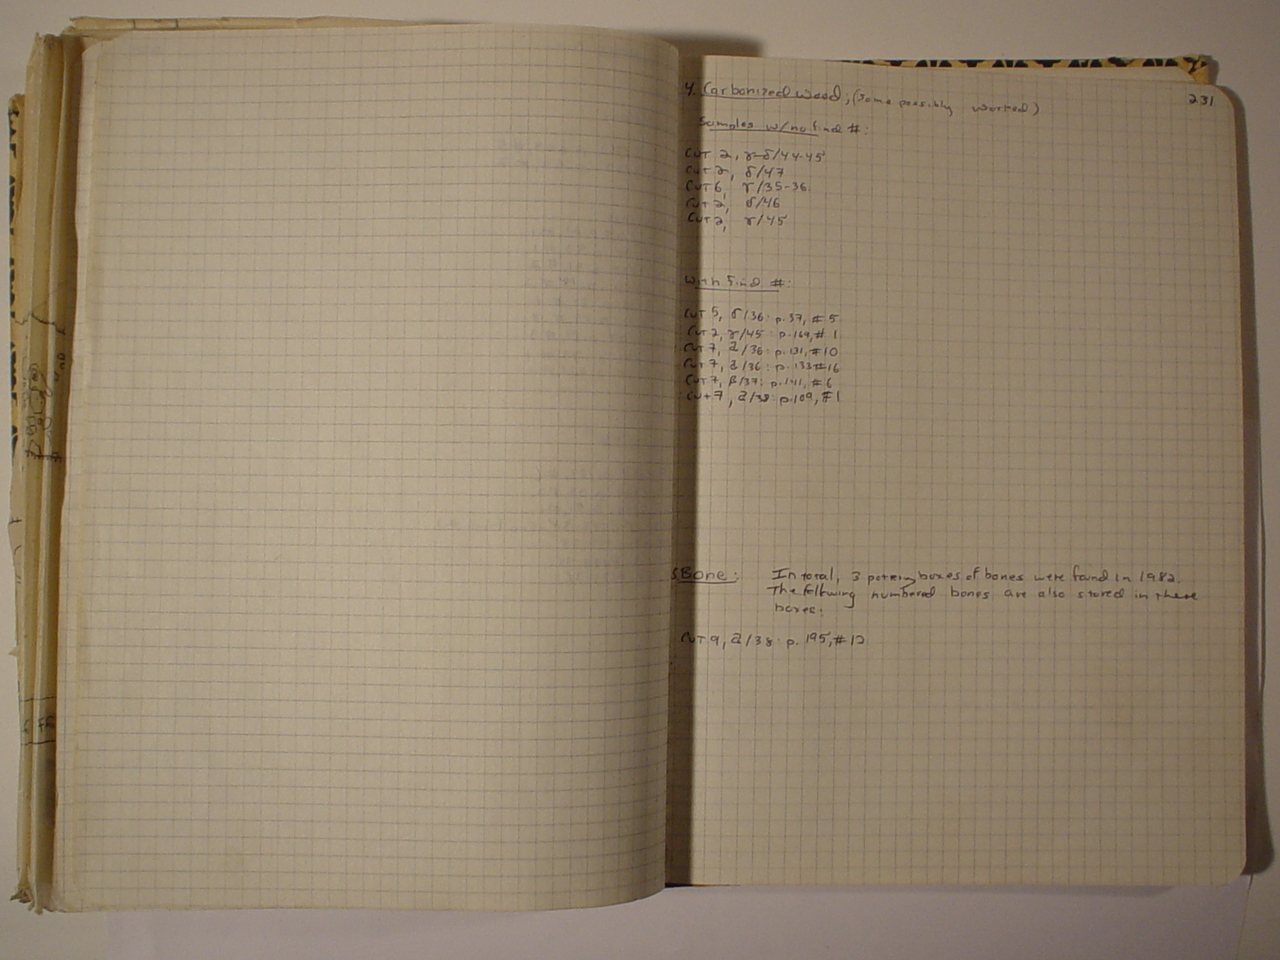 231
4. Carbonized Wood; (some possibly worked)
Samples w/no find #:
Cut 2, γ-δ/44-45
Cut 2, δ/47
Cut 6, γ/35-36
Cut 2, δ/46
Cut 2, γ/45
With find #:
Cut 5, σ/36: p.37, #5
Cut 2, γ/45: p.169, #1
Cut 7, a/36: p.131, #10
Cut 7, a/36: p.133 #16
Cut 7, β/37: p.141, #6
Cut 7, a/38: p.109, #1
5. Bone: In total, 3 pottery boxes of bones were found in 1982.
The following numbered bones are also stored in these
boxes:
Cut 9, a/38: p. 195, #12